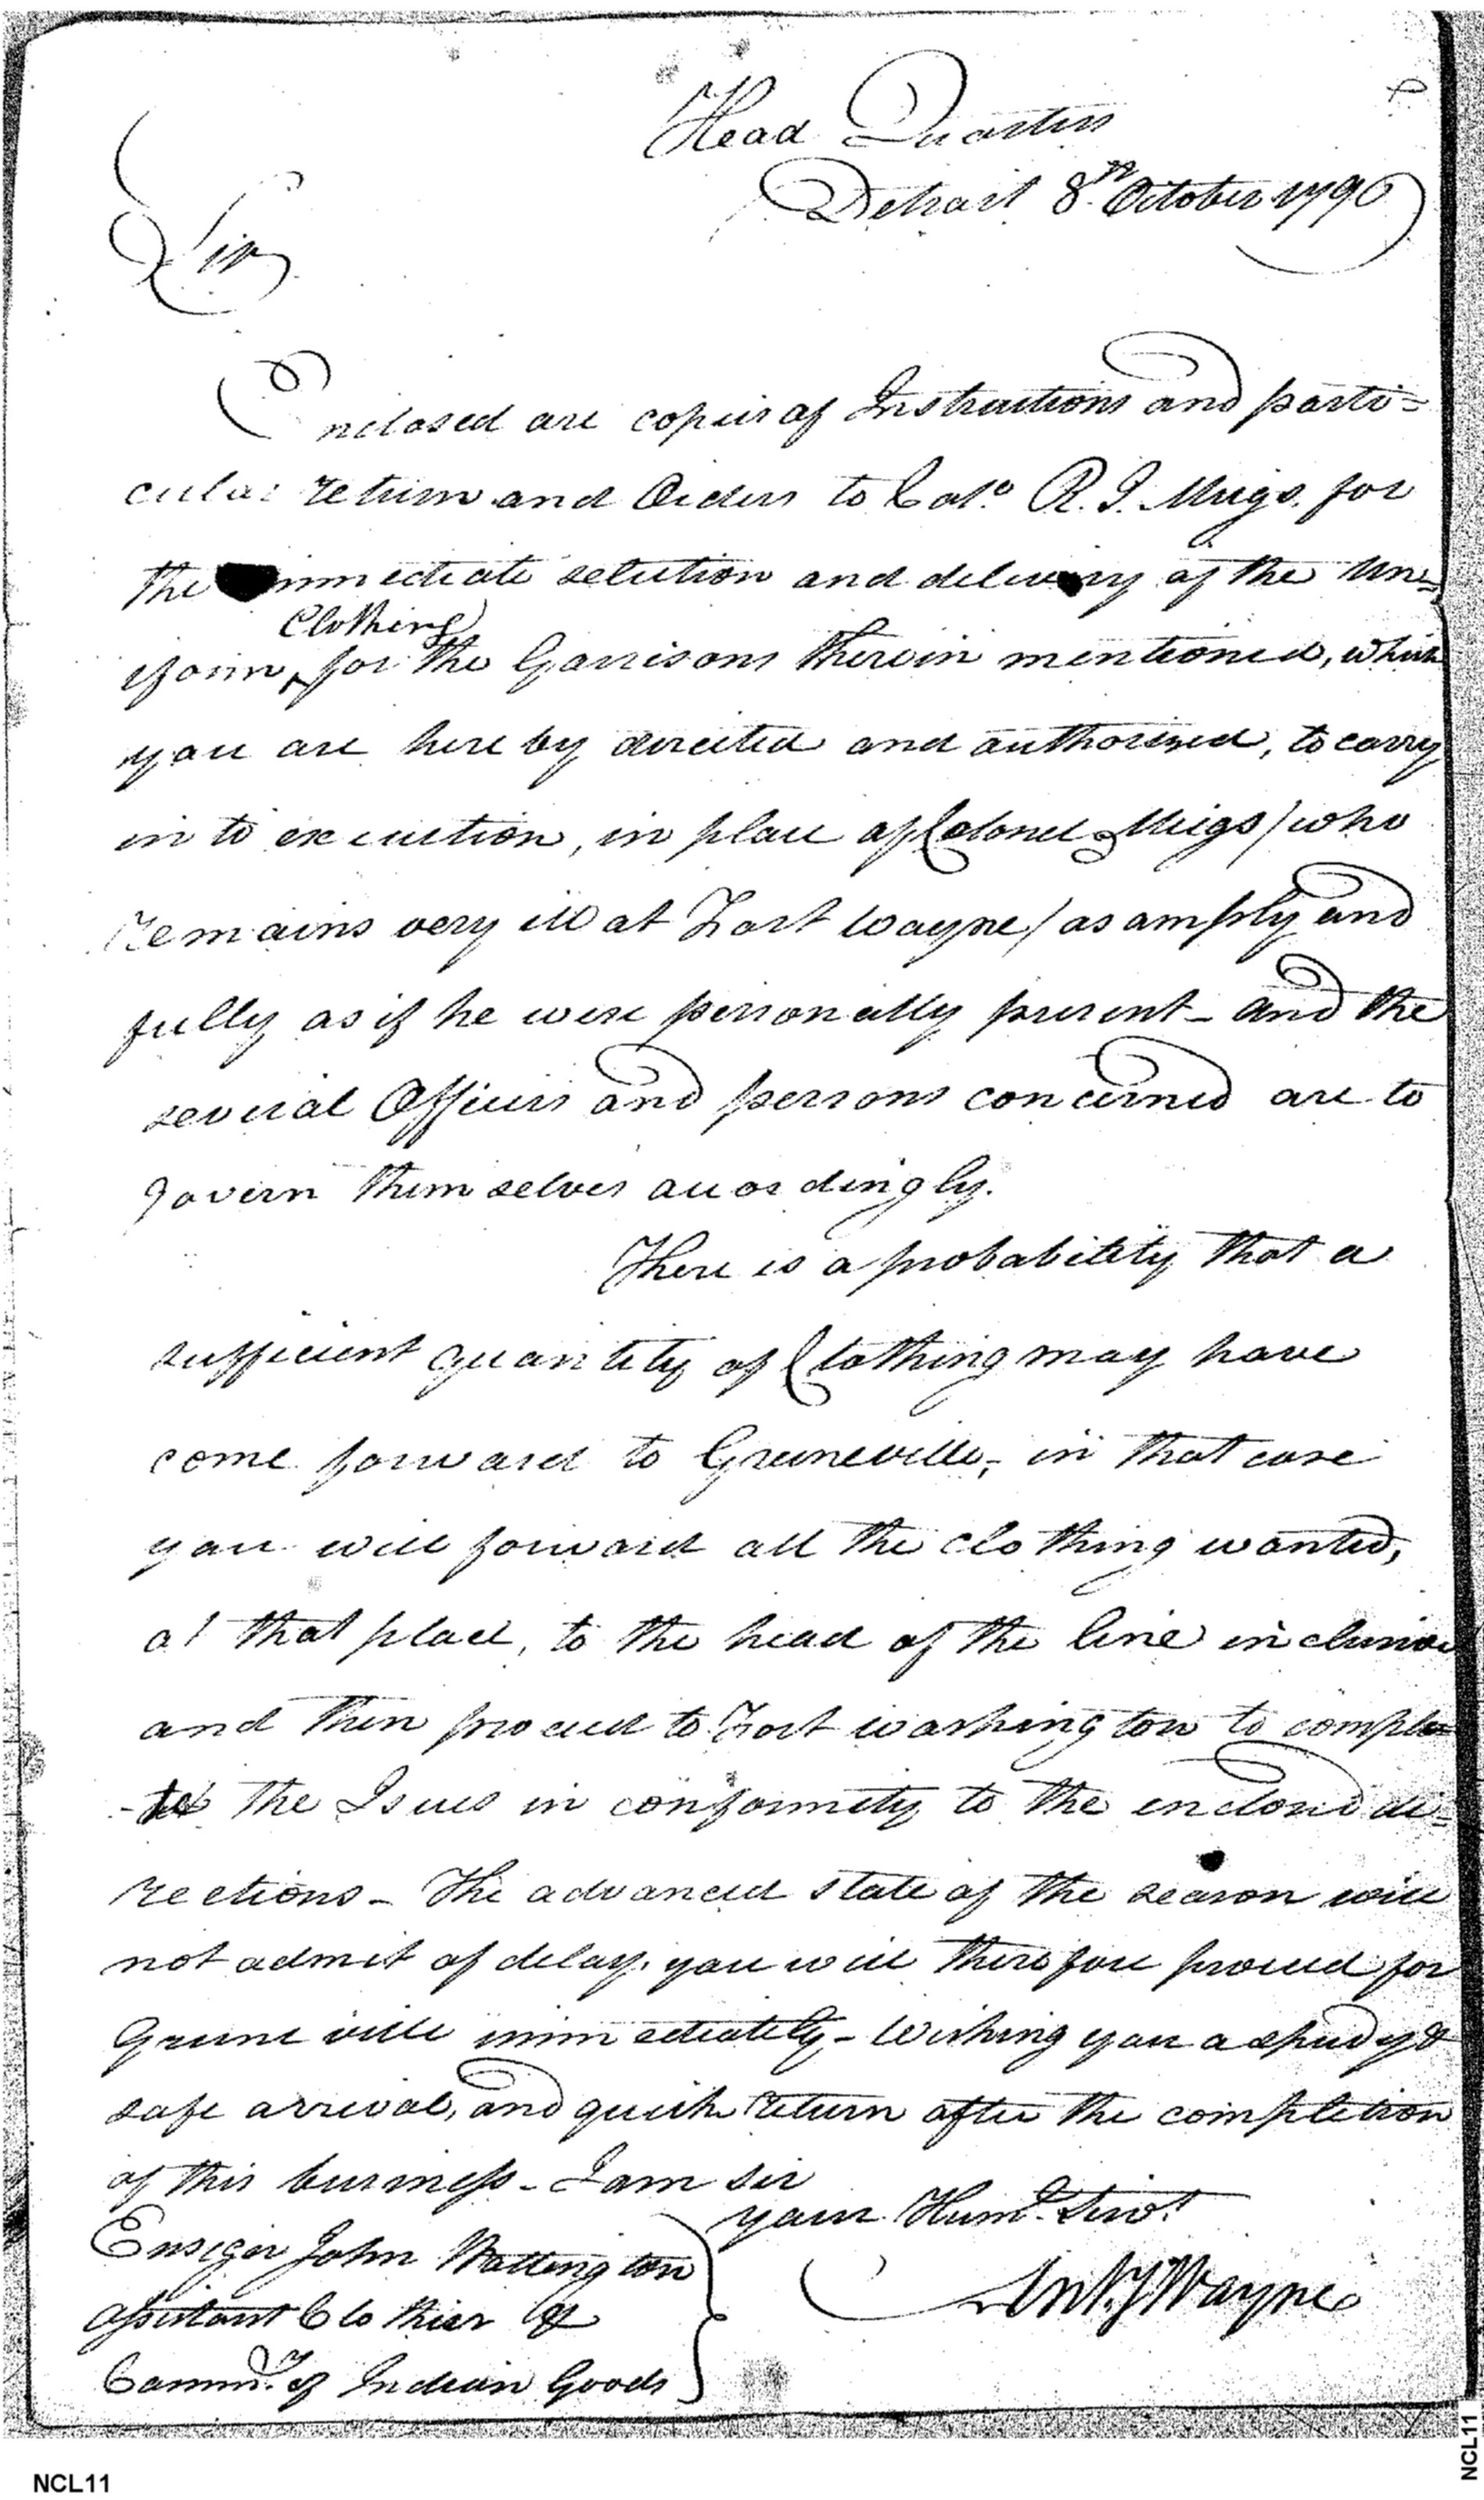 Head Quarters
Detroit 8th October 1796
Sir
Enclosed are copies of Instructions and parti=
cular return and Orders to Colo. R. J. Meigs. for
the immediate selection and delivery of the Un=
Clothing
iform, for the Garrisons therein mentioned, which
you are here by directed and authorized, to carry
in to execution, in place of Colonel Meigs / who
remains very ill at Fort Wayne / as amply and
fully as if he were personally present - and the
several Officers and persons concerned are to
govern them selves accordingly.
There is a probability that a
sufficient quantity of Clothing may have
come forward to Greeneville, in that case
you will forward all the clothing wanted,
at that place, to the head of the line inclusive
and then proceed to Fort Washington to comple
-te the Isues in conformity to the enclosed di-
rections - The advanced state of the season will
not admit of delay. you will therefore proceed for
Greene ville immediately - Wishing you a speedy &
safe arrival, and quick return after the completion
of this business - I am Sir
your Huml. Servt.
Ensign John Wattington
Assistant Clothier &
Commr. of Indian Goods
Anty Wayne
NCL11
NCL11